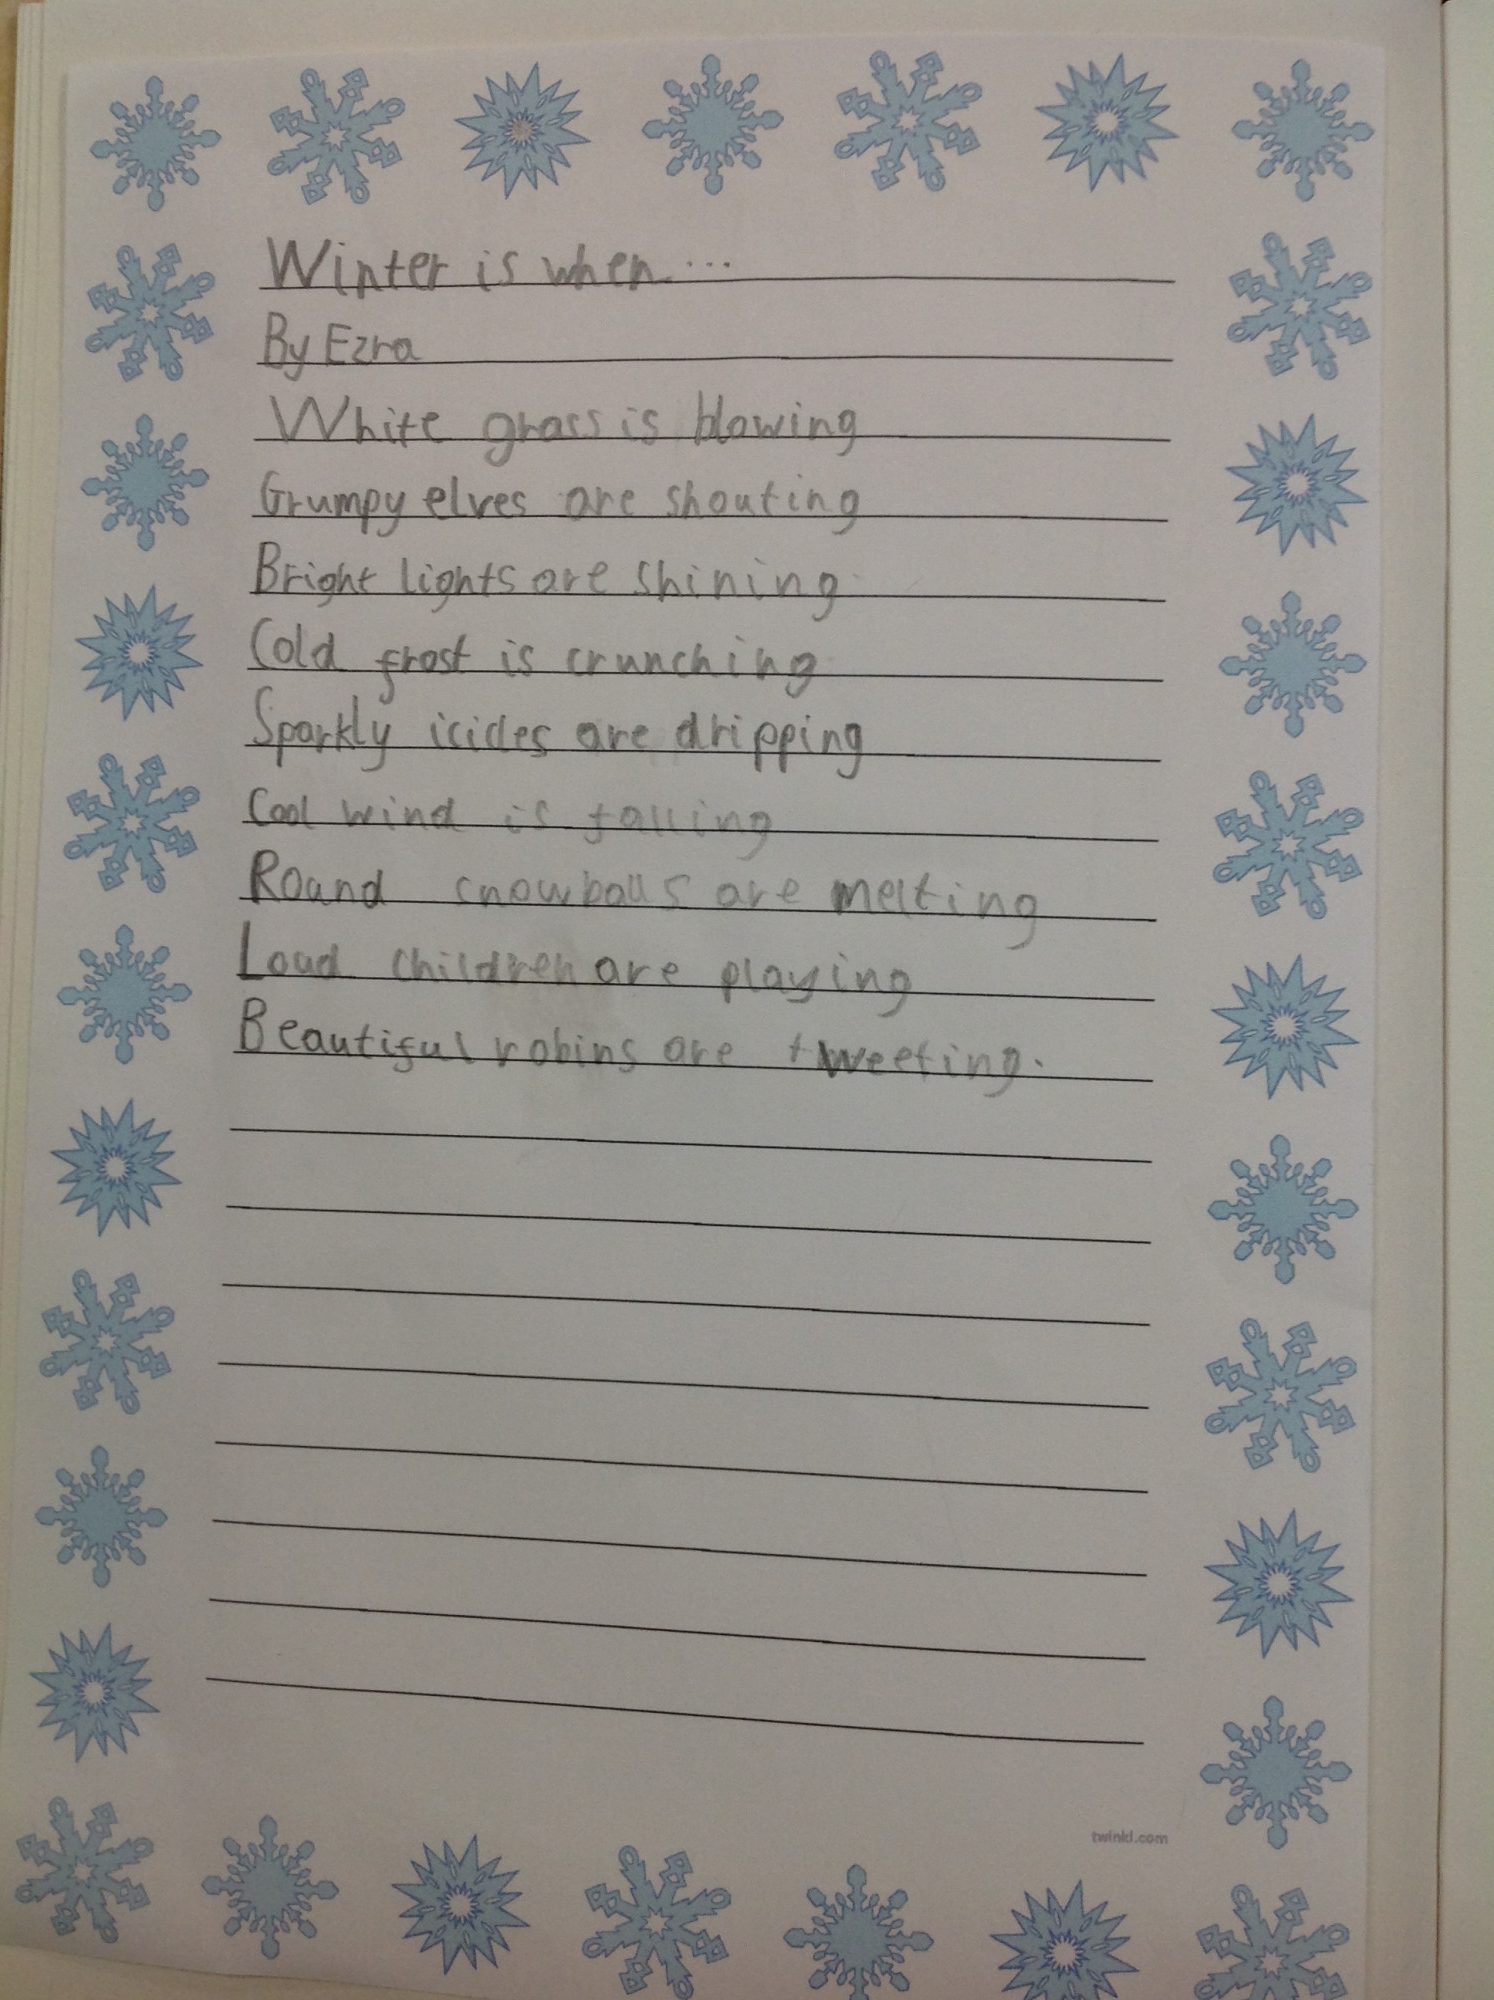 Winter is when...
By Ezra
White grass is blowing
Grumpy elves are shouting
Bright lights are shining.
Cold frost is crunching
Sparkly icicles are dripping
Cool wind is falling
Round snowballs are melting
Loud children are playing
Beautiful robins are tweeting.
twinkl.com